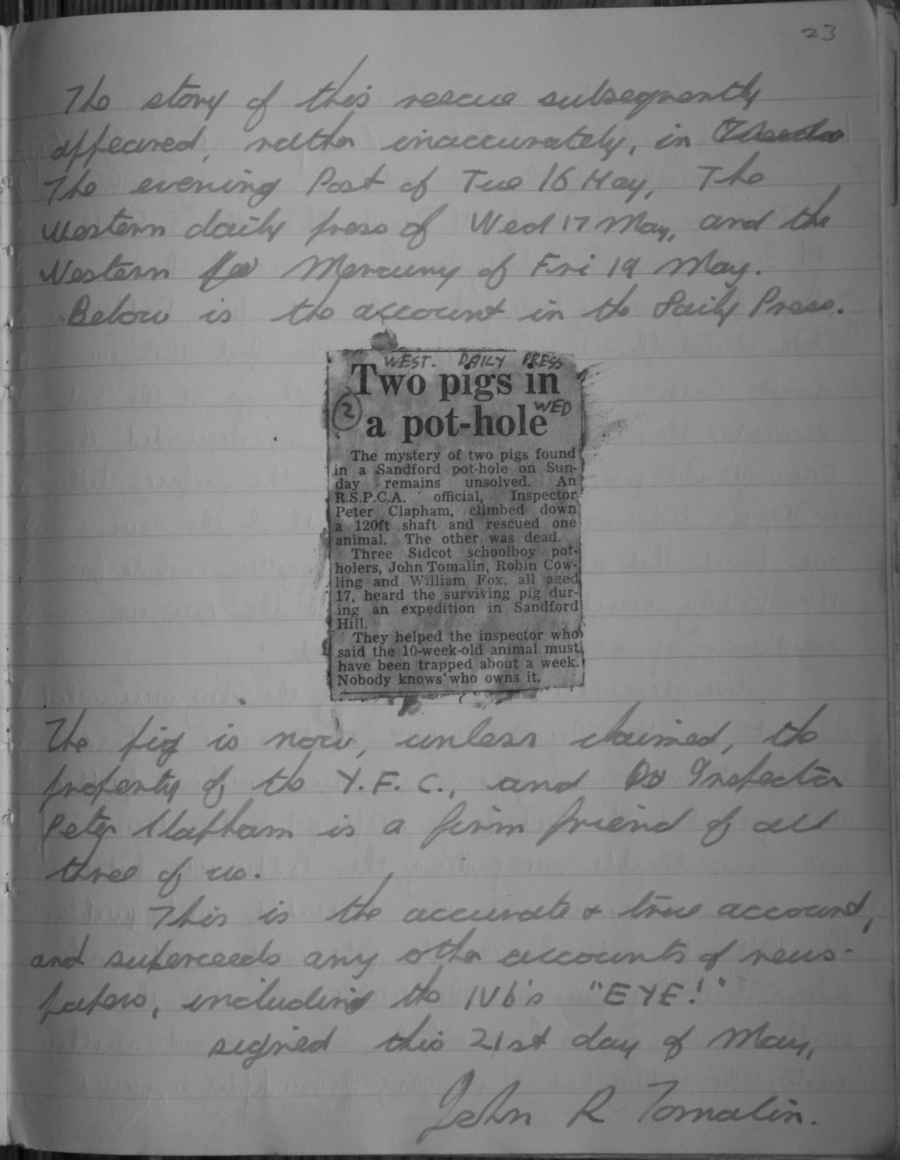 23
The story of this rescue subsequently
appeared, rather inaccurately, in
The evening Post of Tue 16 May, The
Western daily press of Wed 17 May, and the
Western Mercury of Fri 19 May.
Below is the account in the Daily Press.
WEST. DAILY PRESS
Two pigs in
2 a pot-hole WED
The mystery of two pigs found
in a Sandford pot-hole on Sun-
day remains unsolved. An
R.S.P.C.A. official, Inspector
Peter Clapham, climbed down
a 120ft shaft and rescued one
animal. The other was dead.
Three Sidcot schoolboy pot-
holers, John Tomalin, Robin Cow-
ling and William Fox, all aged
17, heard the surviving pig dur-
ing an expedition in Sandford
Hill.
They helped the inspector who
said the 10-week-old animal must
have been trapped about a week.
Nobody knows who owns it.
The pig is now, unless claimed, the
property of the Y.F.C., and Inspector
Peter Clapham is a firm friend of all
three of us.
This is the accurate & true account,
and superceeds any other accounts of news-
papers, including the IVb's "EYE!"
signed this 21st day of May,
John R Tomalin.